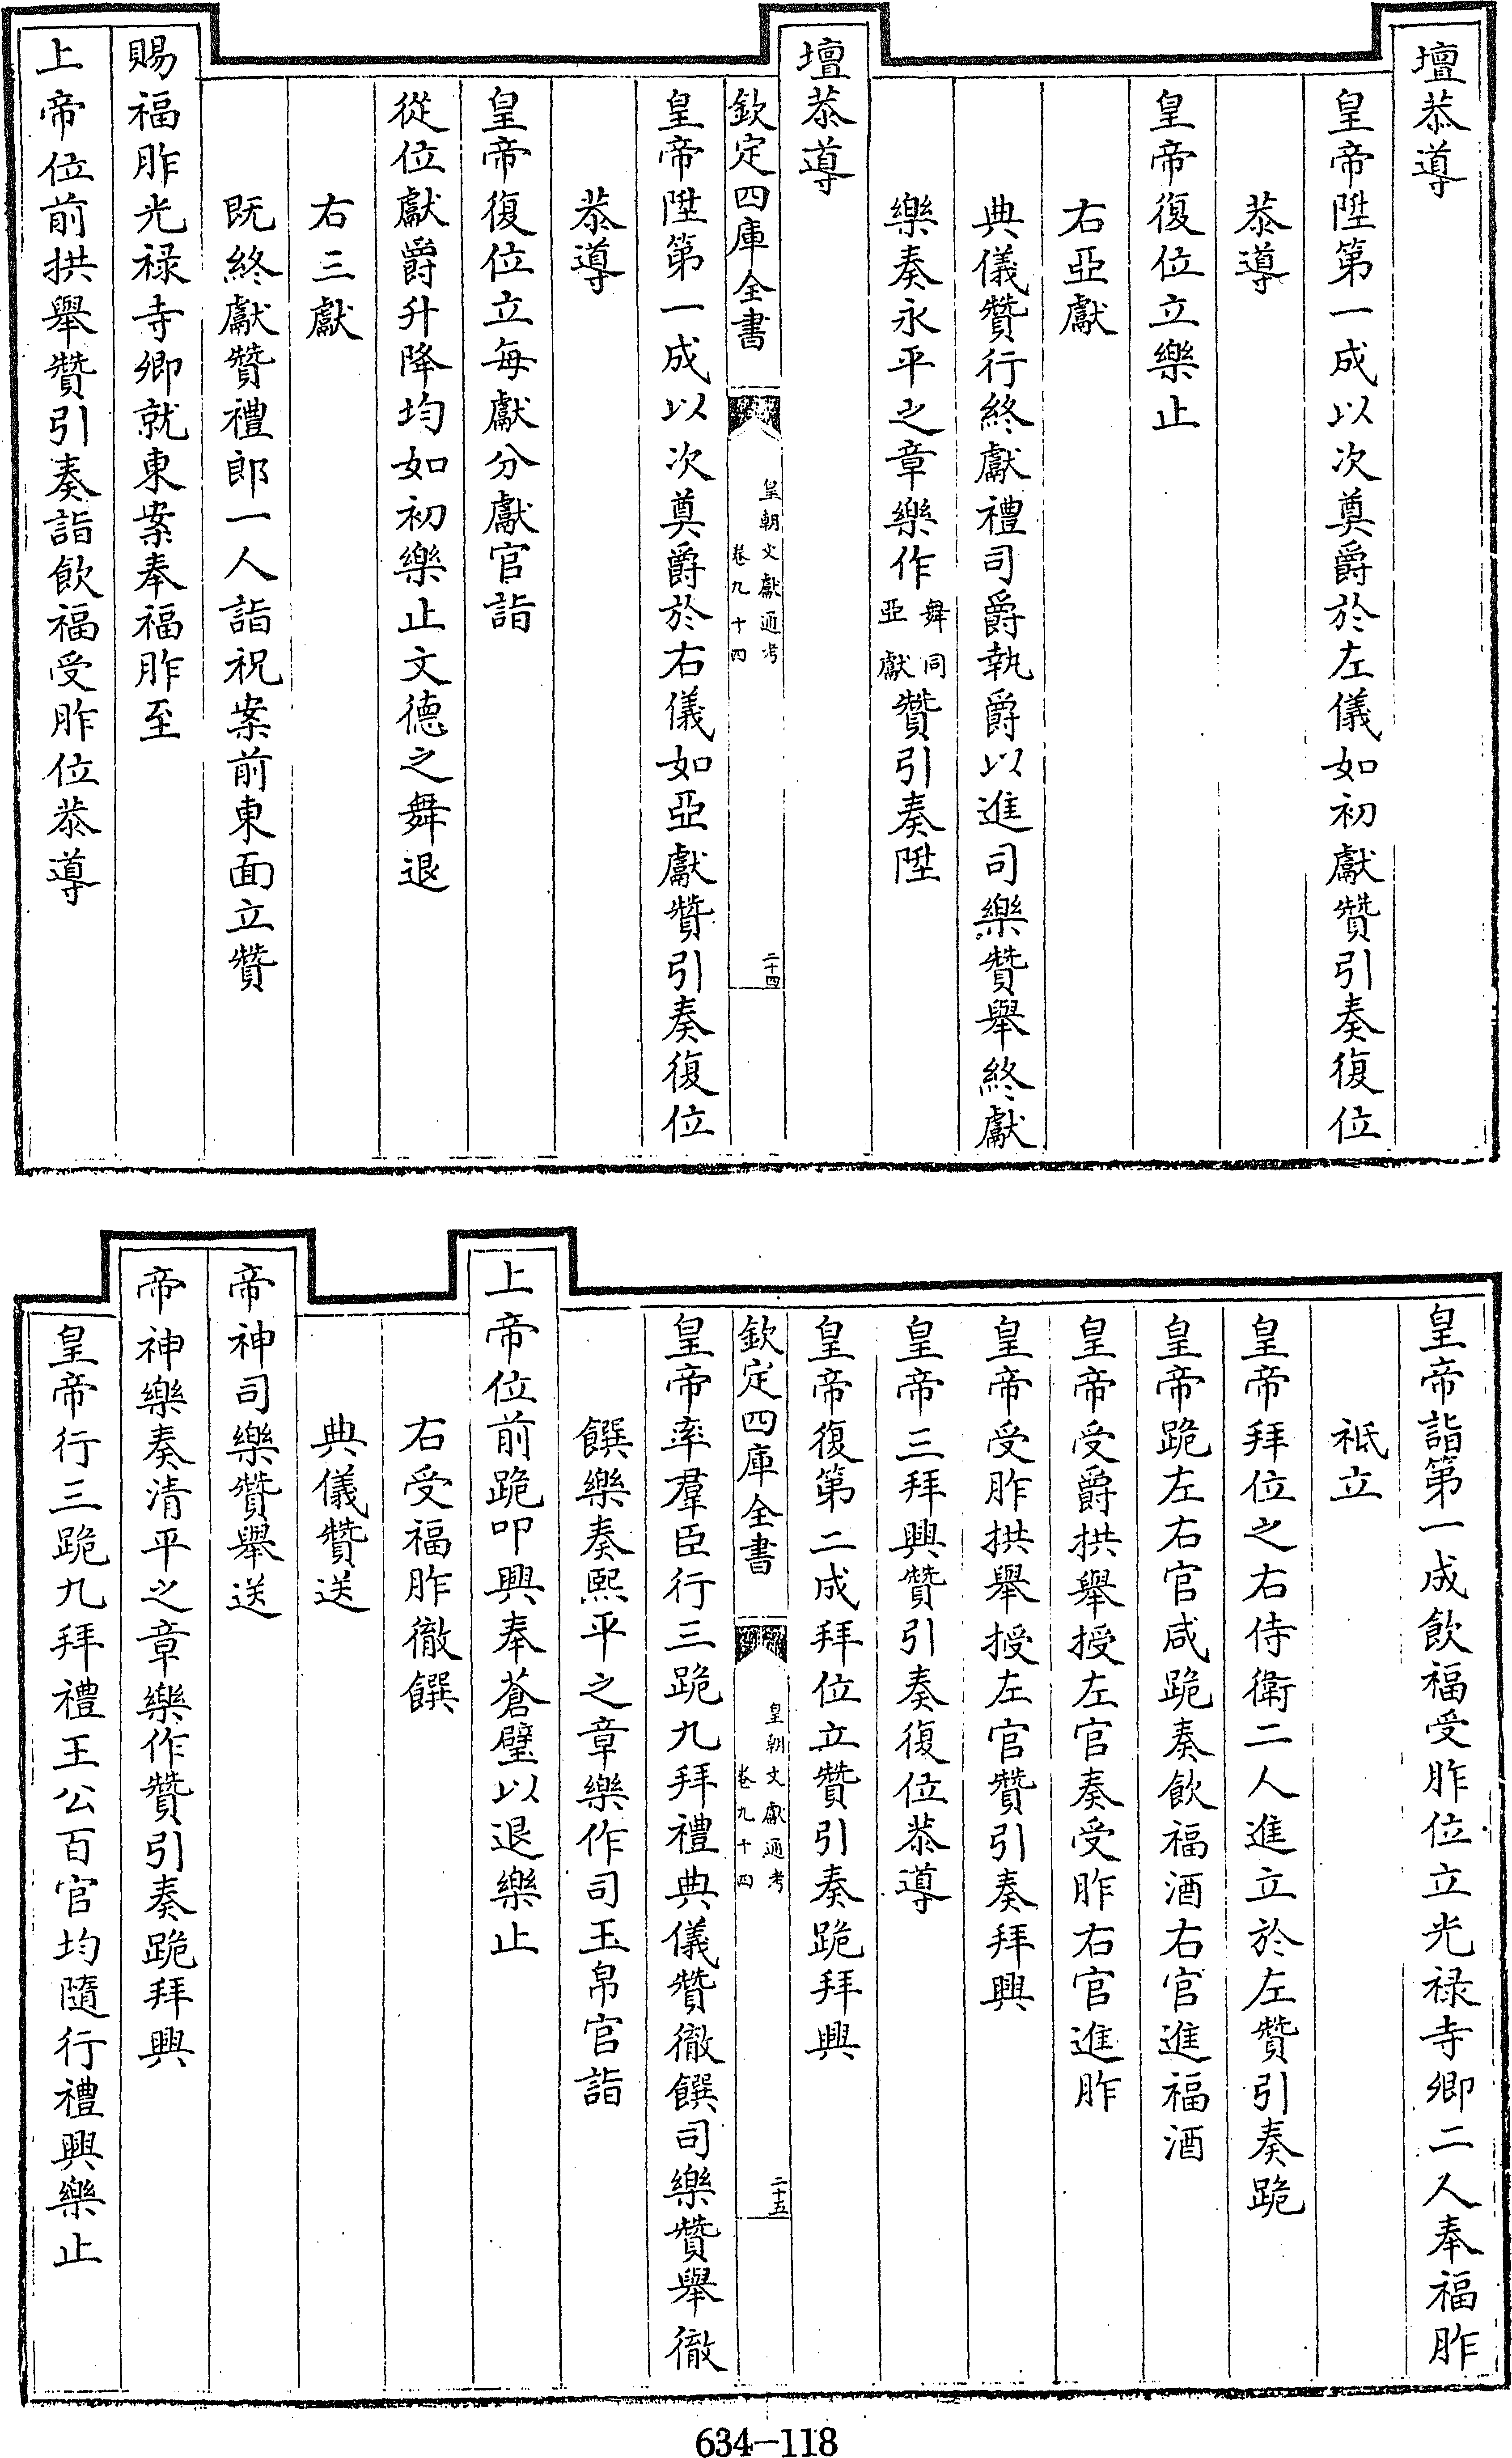 壇恭導
皇帝陞第一成以次奠爵於左儀如初獻贊引奏復位
恭導
皇帝復位立樂止
右亞獻
典儀贊行終獻禮司爵執爵以進司樂贊舉終獻
樂奏永平之章樂作舞同亞獻贊引奏陞
壇恭導
欽定四庫全書 皇朝文獻通考 卷九十四 二十四
皇帝陞第一成以次奠爵於右儀如亞獻贊引奏復位
恭導
皇帝復位立每獻分獻官詣
從位獻爵升降均如初樂止文德之舞退
右三獻
既終獻贊禮郎一人詣祝案前東面立贊
賜福胙光祿寺卿就東案奉福胙至
上帝位前拱舉贊引奏詣飲福受胙位恭導
皇帝詣第一成飲福受胙位立光祿寺卿二人奉福胙
祗立
皇帝拜位之右侍衛二人進立於左贊引奏跪
皇帝跪左右官咸跪奏飲福酒右官進福酒
皇帝受爵拱舉授左官奏受胙右官進胙
皇帝受胙拱舉授左官贊引奏拜興
皇帝三拜興贊引奏復位恭導
皇帝復第二成拜位立贊引奏跪拜興
欽定四庫全書 皇朝文獻通考 卷九十四 二十五
皇帝率羣臣行三跪九拜禮典儀贊徹饌司樂贊舉徹
饌樂奏熙平之章樂作司玉帛官詣
上帝位前跪叩興奉蒼璧以退樂止
右受福胙徹饌
典儀贊送
帝神司樂贊舉送
帝神樂奏清平之章樂作贊引奏跪拜興
皇帝行三跪九拜禮王公百官均隨行禮興樂止
634-118